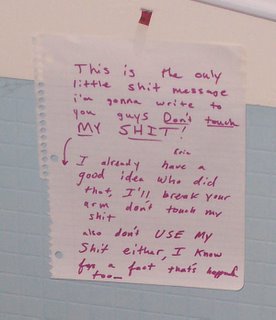 This is the only
little shit message
i'm gonna write to
you guys Don't touch
MY SHIT!
Erin
I already have a
good idea who did
that, I'll break your
arm don't touch my
shit
also don't USE MY
Shit either, I know
for a fact thats happened
too—